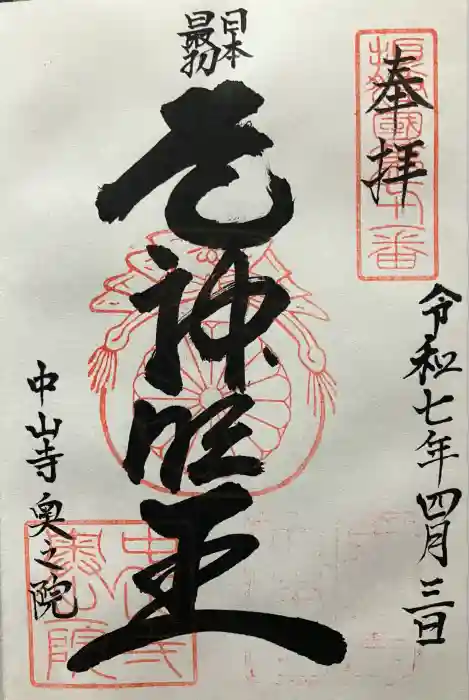 奉拝
令和七年四月三日
日本
最初
厄神明王
中山寺奥之院